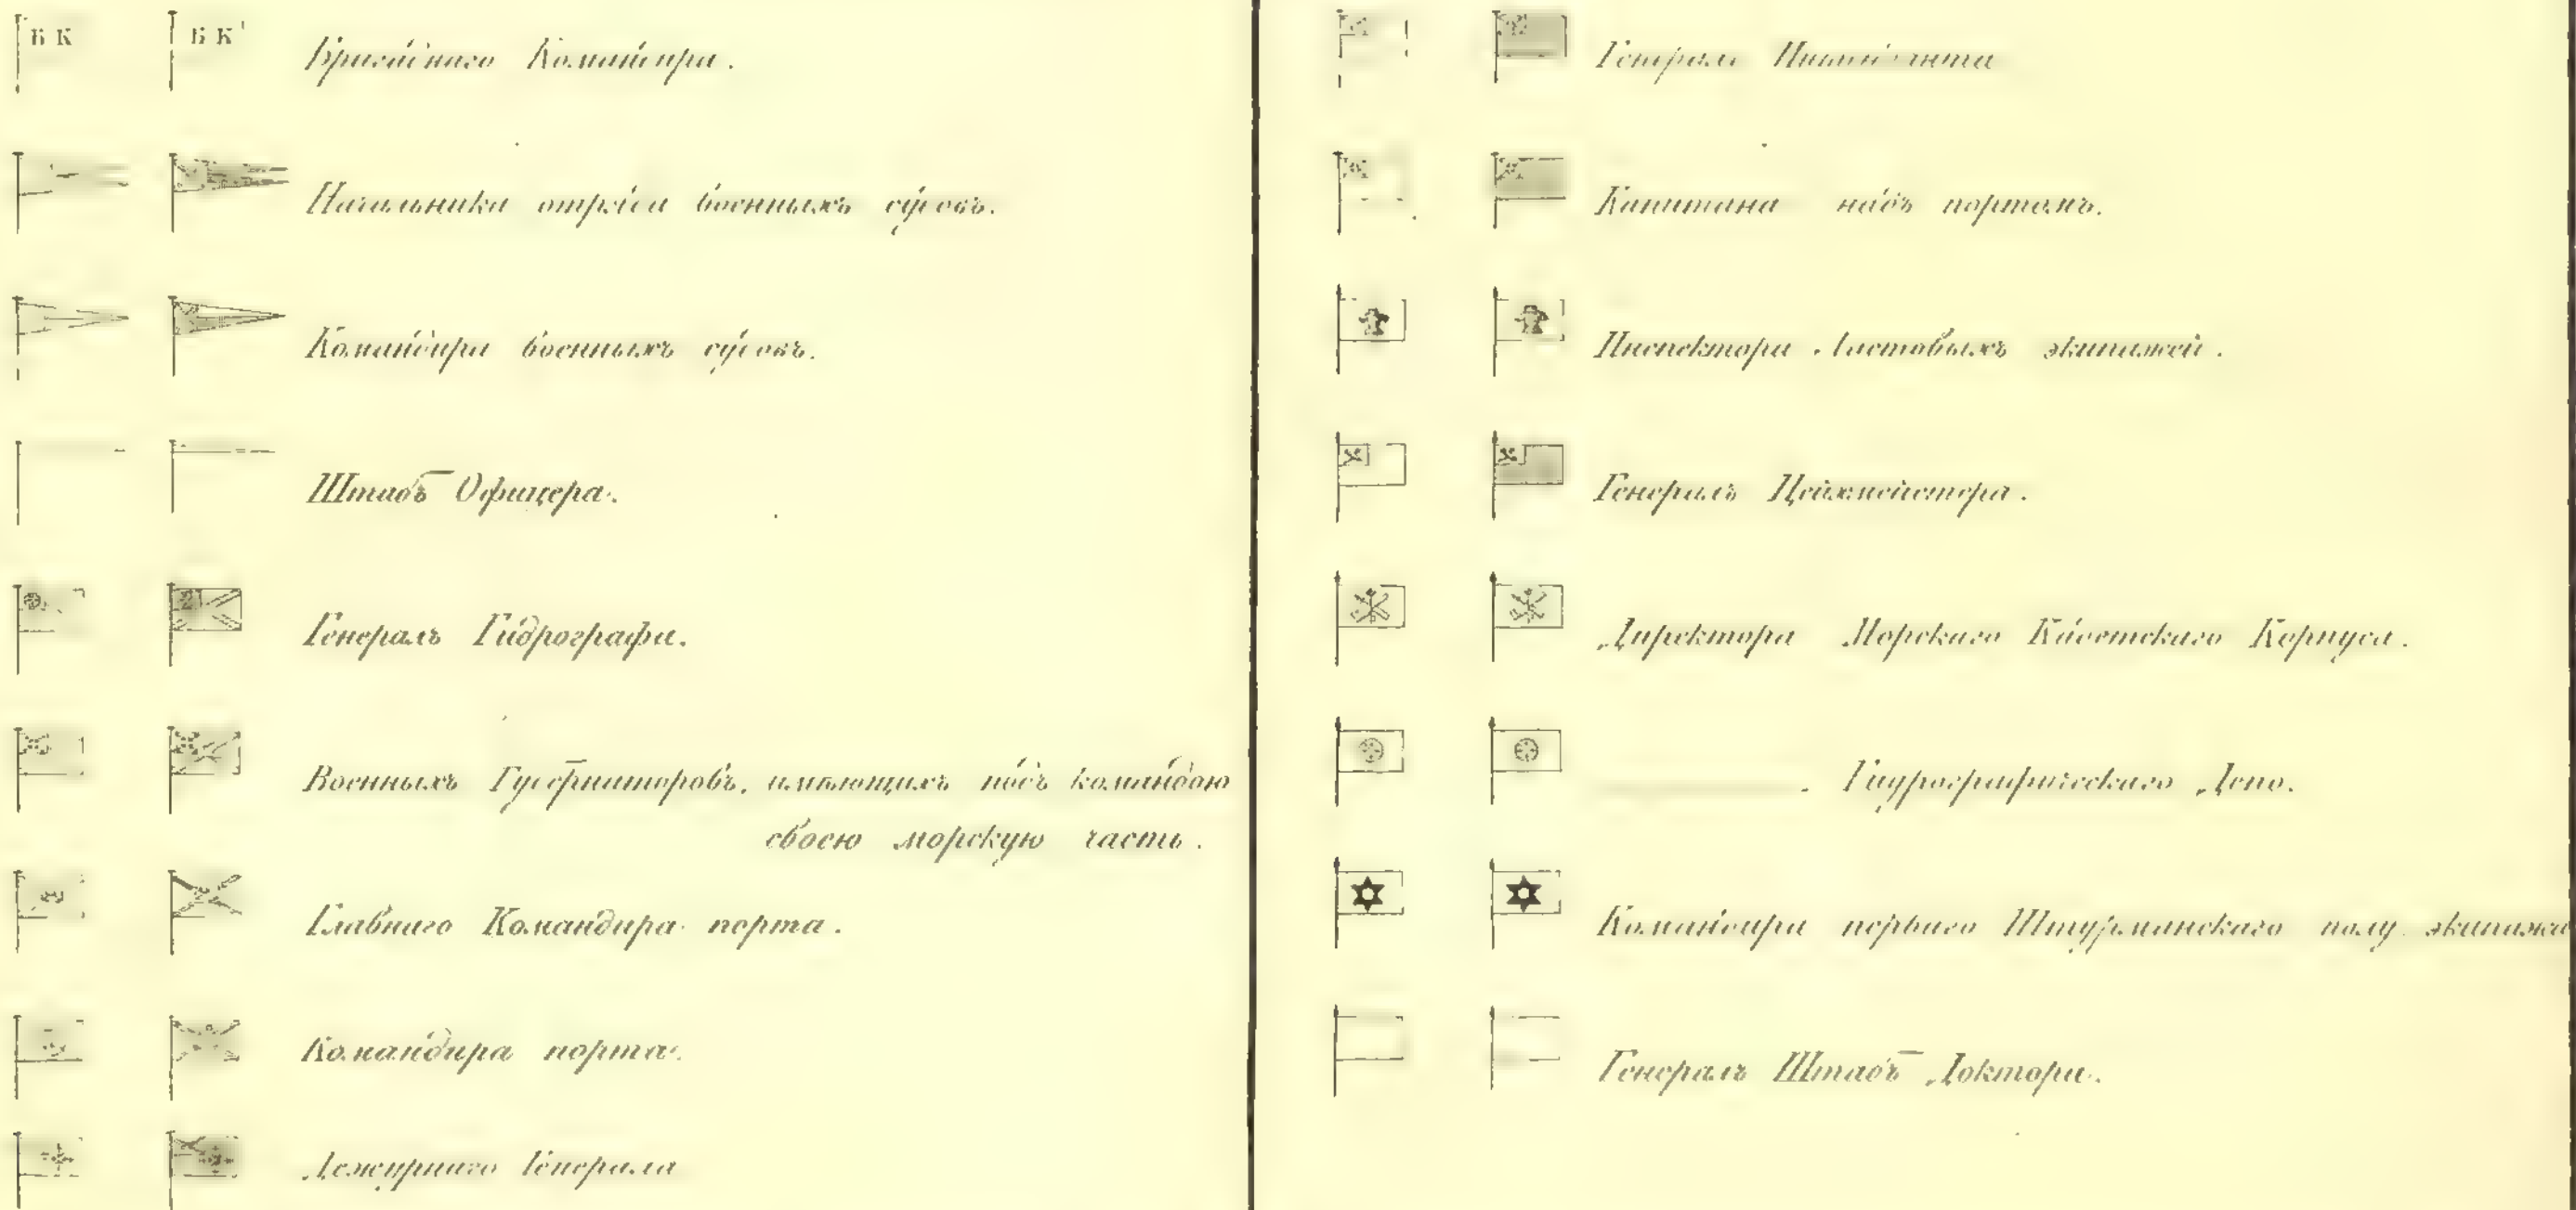 Б К Б К Бригаднаго Командира.
Начальника отряда военныхъ судовъ.
Командира военныхъ судовъ.
Штабъ Офицера.
Генералъ Гидрографа.
Военныхъ Губернаторовъ, имѣющихъ подъ командою
своею морскую часть.
Главнаго Командира порта.
Командира порта.
Дежурнаго Генерала
Генералъ Интенданта
Капитана надъ портомъ.
Инспектора Ластовыхъ экипажей.
Генералъ Цейхмейстера.
Директора Морскаго Кадетскаго Корпуса.
Гидрографическаго Депо.
Командира перваго Штурманскаго полу экипажа
Генералъ Штабъ Доктора.